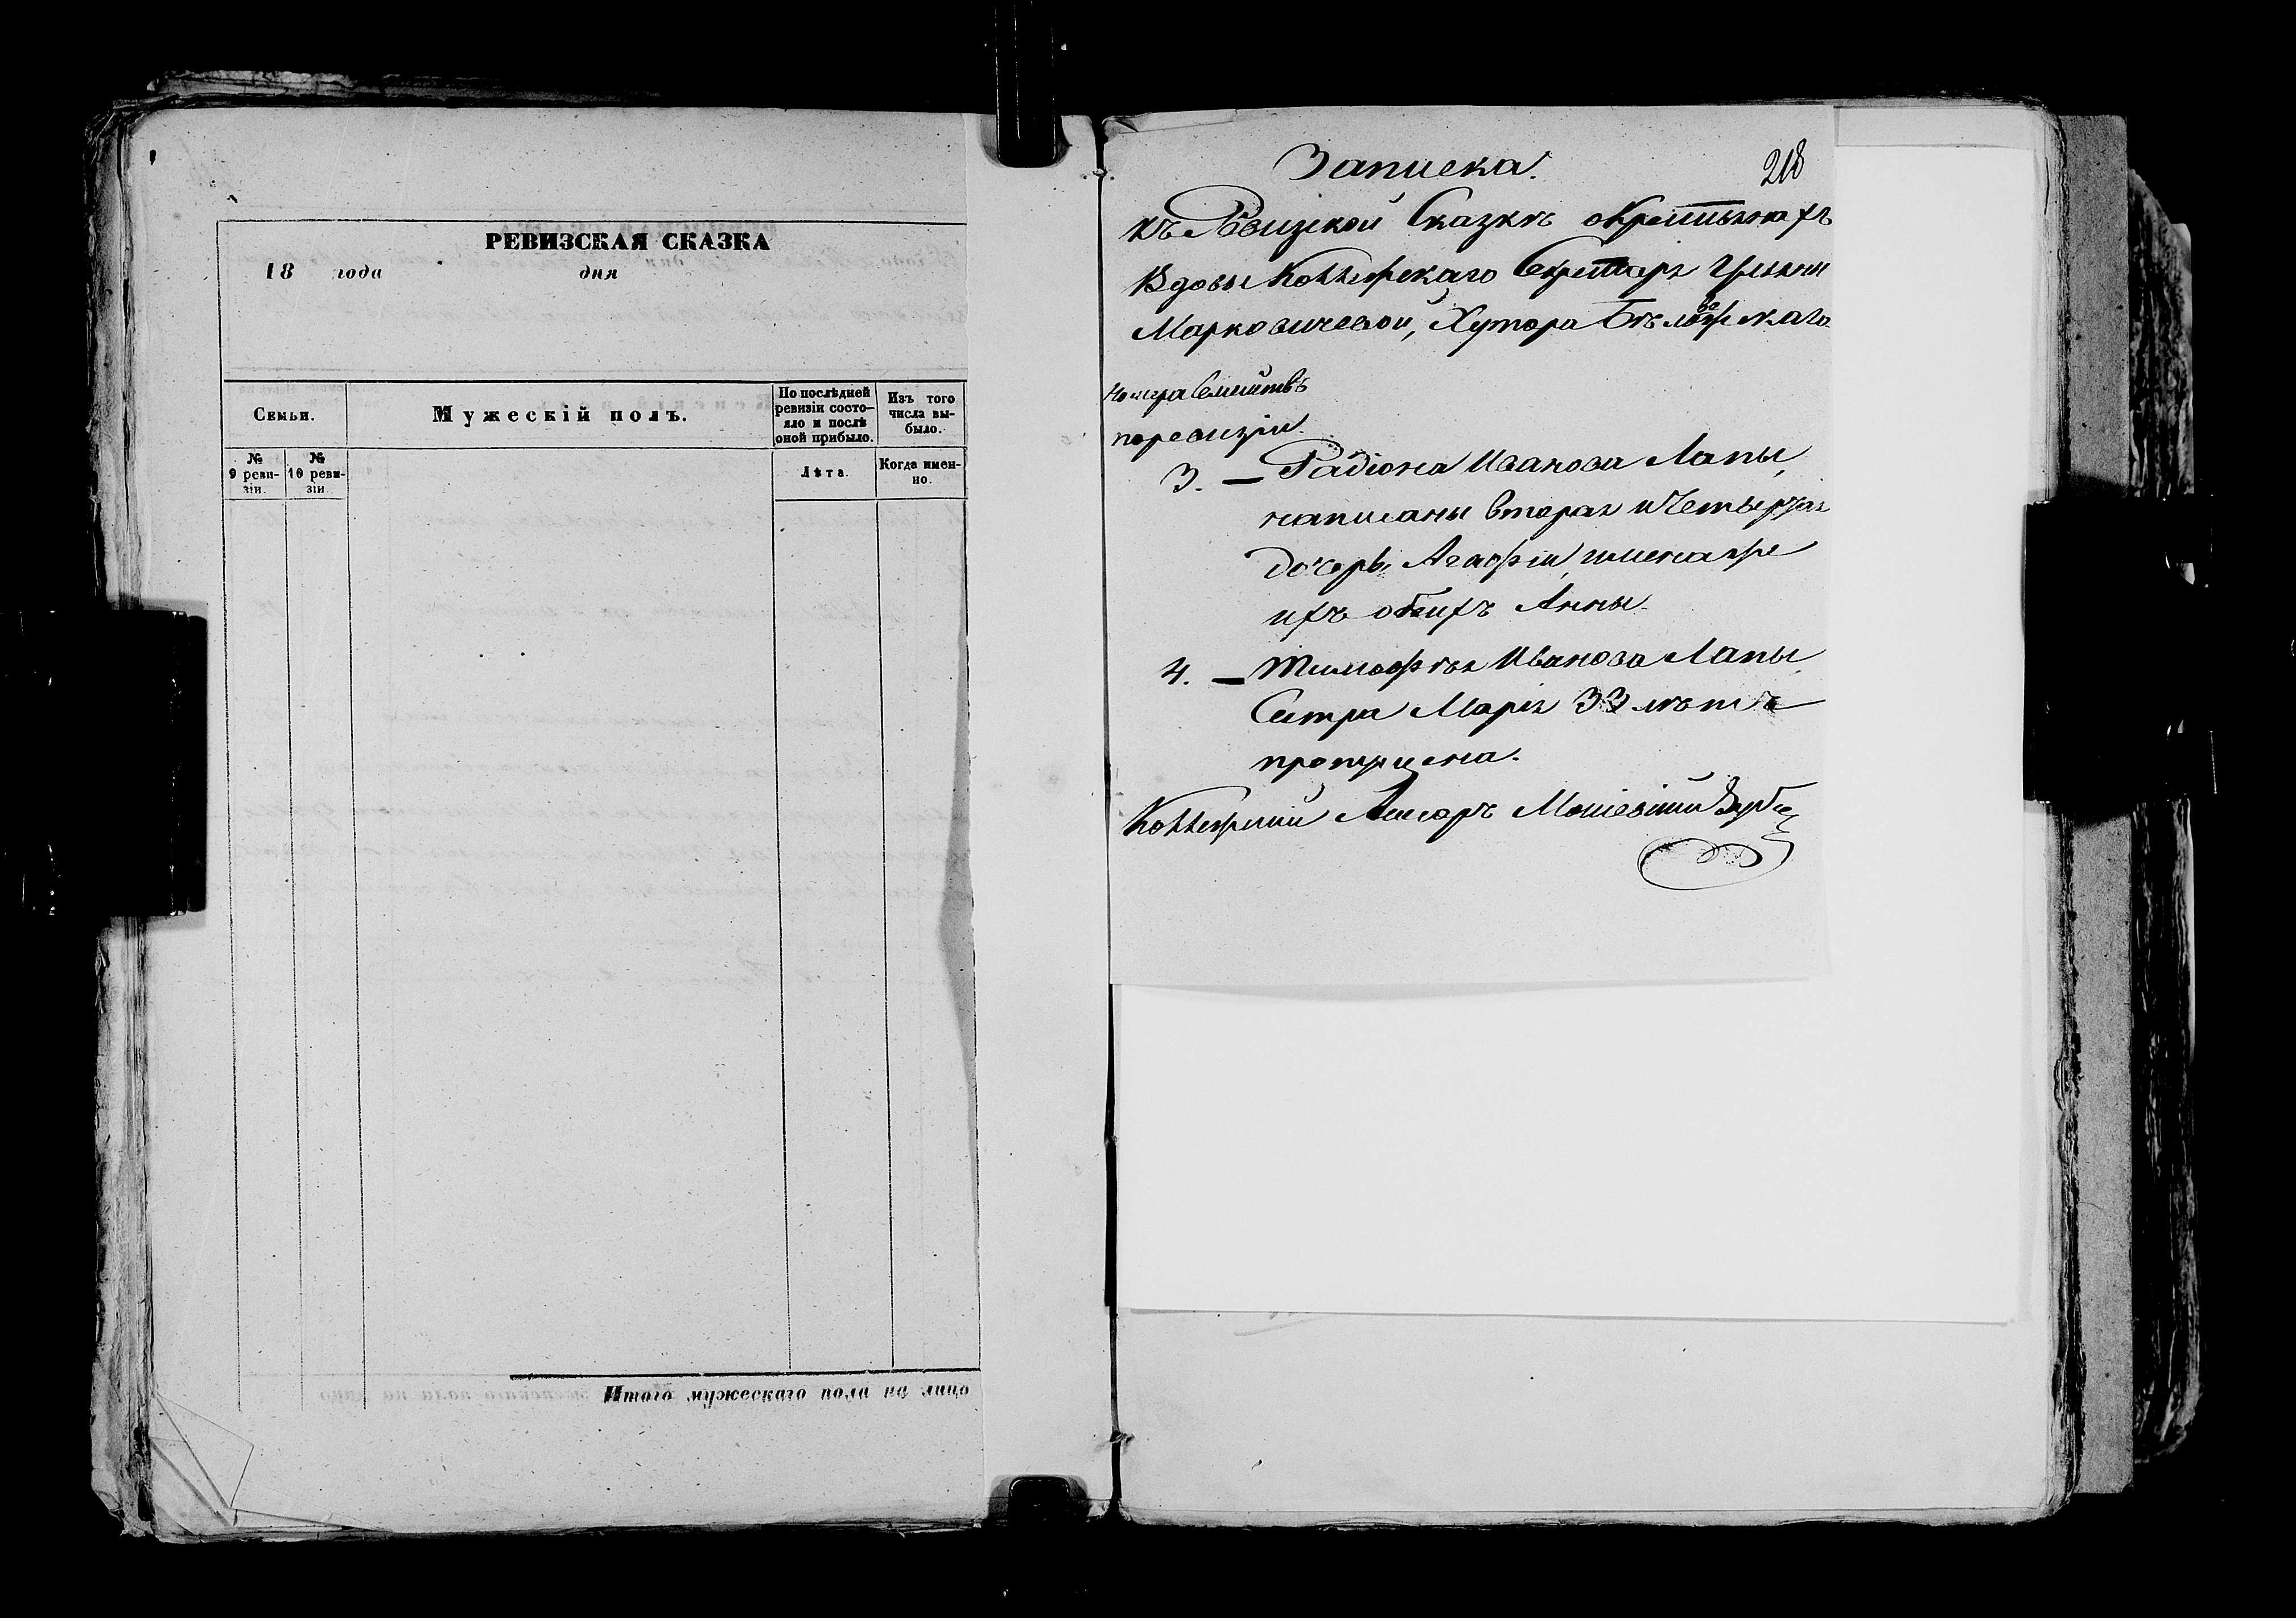 РЕВИЗСКАЯ СКАЗКА
18 года дня
Семьи.
Мужескій полъ.
По послѣдней
ревизіи состо-
яло и послѣ
оной прибыло.
Изъ того
числа вы-
было.
№
9 реви-
зіи.
№
10 реви-
зіи
Лѣта.
Когда имен-
но.
Итого мужескаго пола на лицо
218
Записка.
къ Ревизской Сказкѣ о Крестьянахъ
Вдовы Коллежскаго Секретаря
Марковичевой, Хутора
Номера Семействъ
по ревизіи.
3. — Радіона Иванова Лапы,
написаны вторая и Четвертая
дочерь Агафіи, имена же
ихъ обеихъ Анны.
4. — Тимофѣя Иванова Лапы
Сестра Марія 33 лѣтъ
пропущена.
Коллежскій Асесоръ